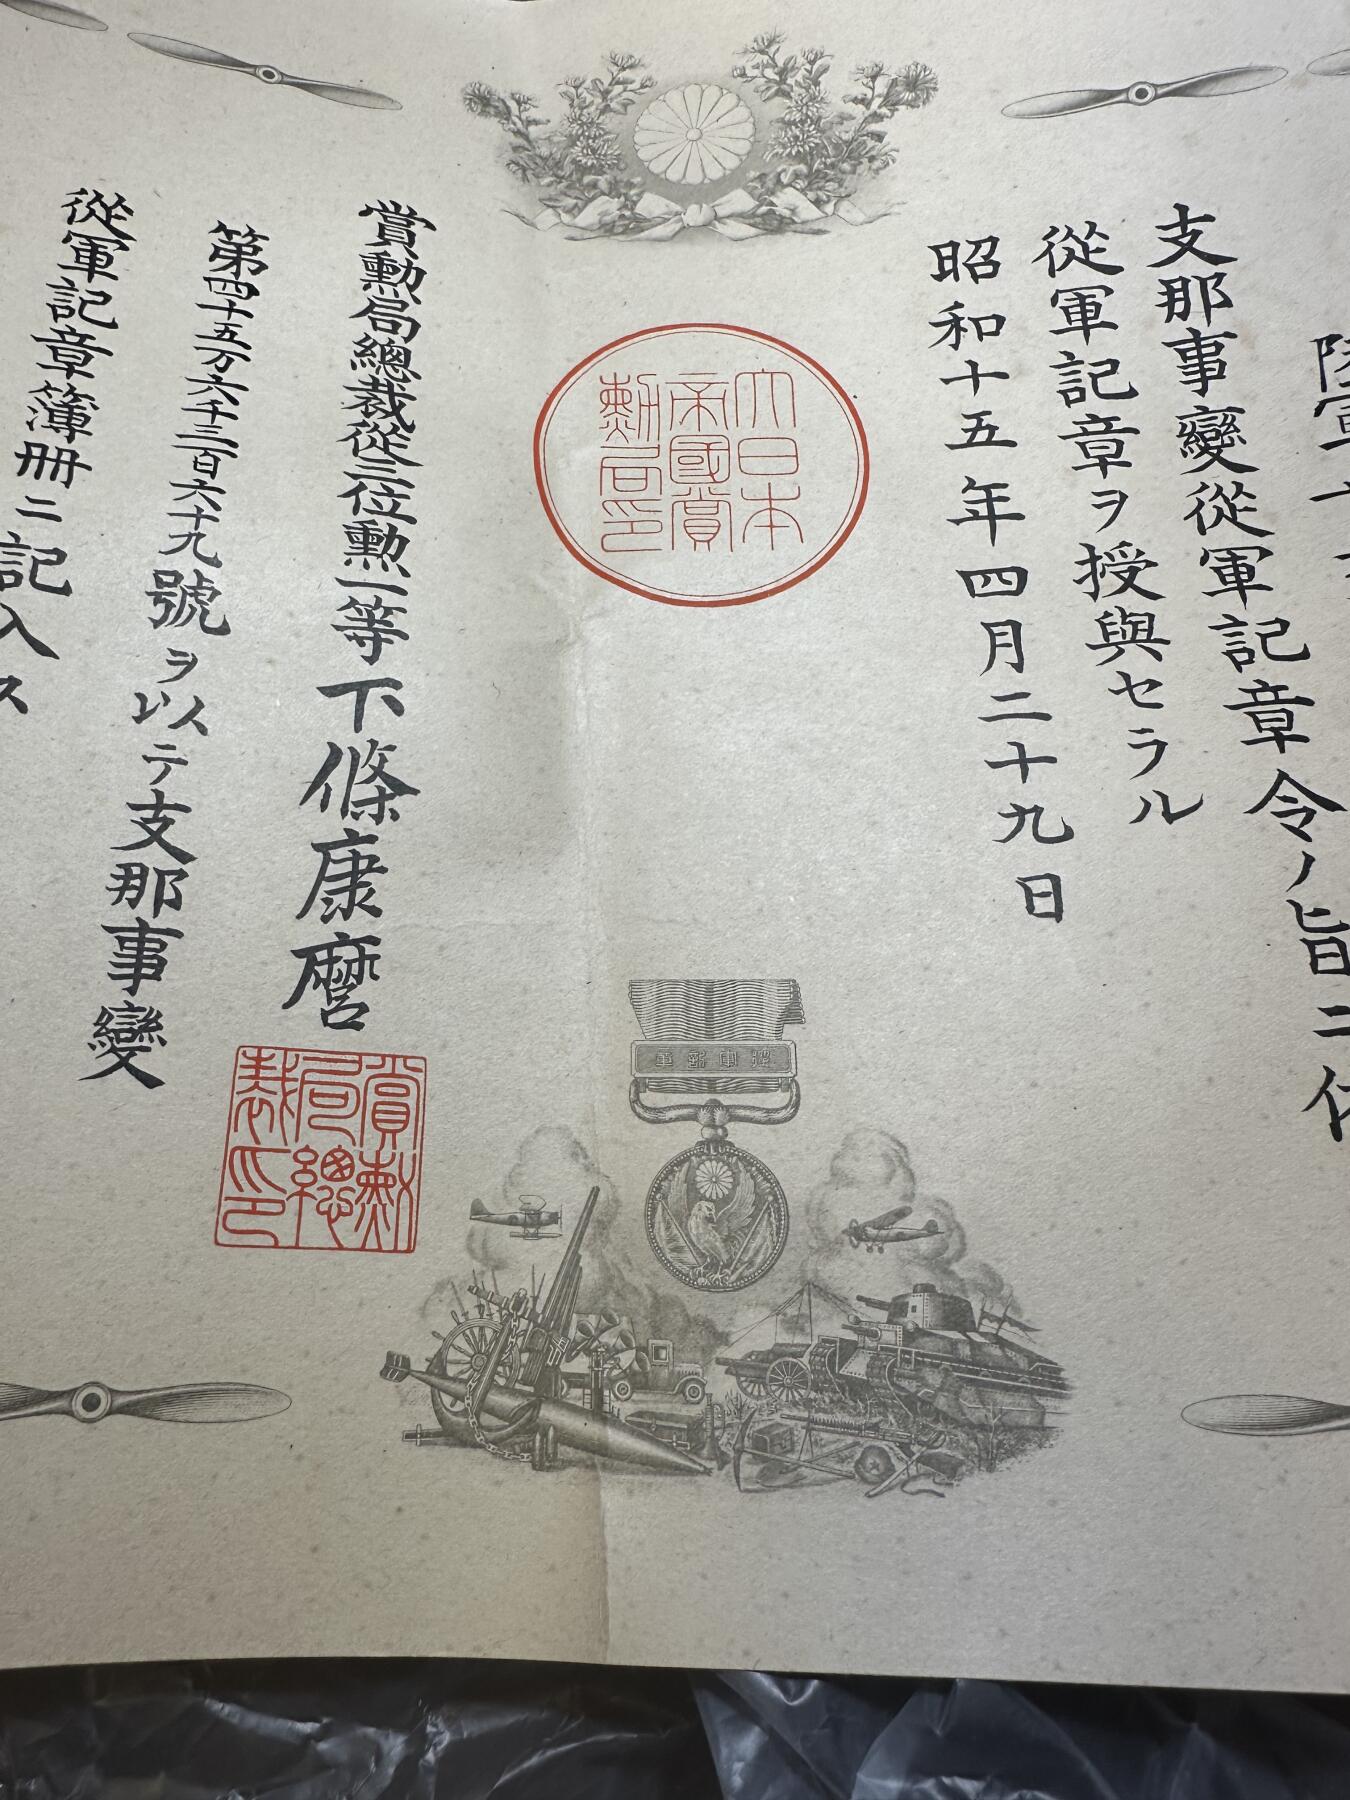 陸軍
支那事變從軍記章令ノ旨ニ依
從軍記章ヲ授與セラル
昭和十五年四月二十九日
大日本
帝國賞
勲局印
賞勲局總裁從三位勲一等下條康麿
賞勲
局總
裁印
第四十五万六千三百六十九號ヲ以テ支那事變
從軍記章簿冊ニ記入ス